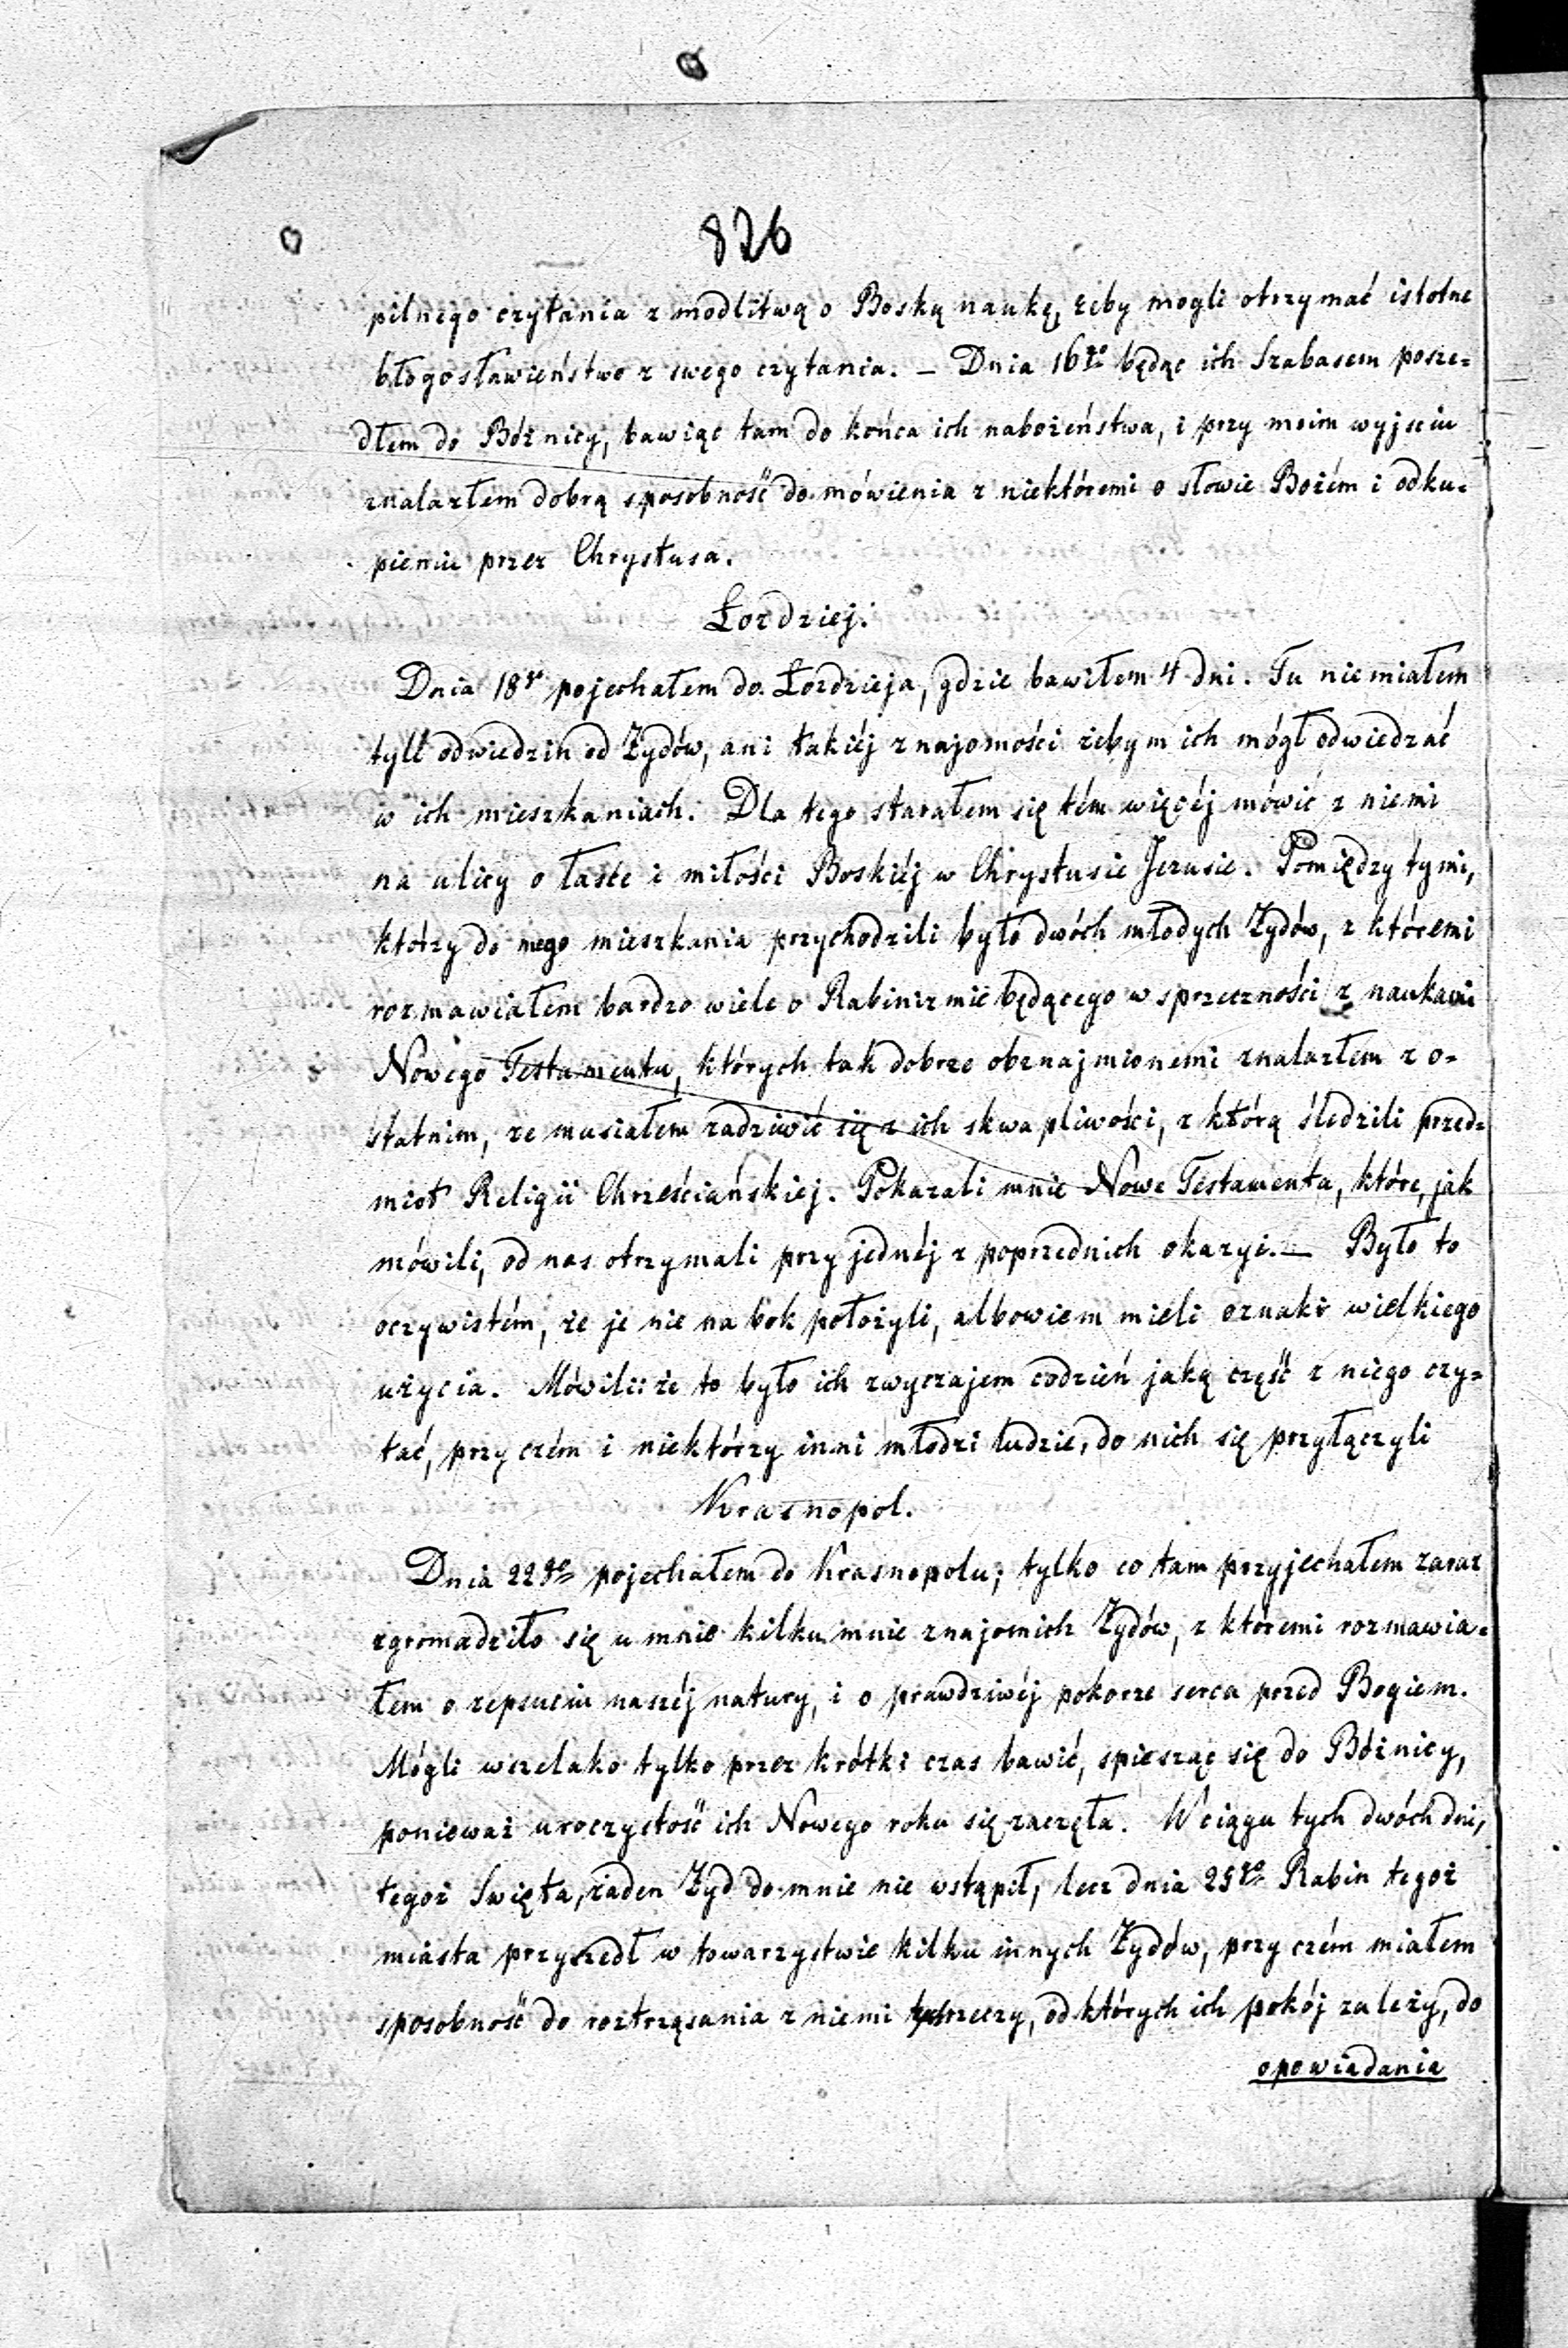 826
pilnego czytania z modlitwą o Boską naukę, żeby mogli otrzymać istotne
błogosławieństwo z swego czytania. – Dnia 16go będąc ich Szabasem posze-
dłem do Bóżnicy, bawiąc tam do końca ich nabożeństwa, i przy moim wyjściu
znalazłem dobrą sposobność do mówienia z niektóremi o słowie Bożém i odku-
pieniu przez Chrystusa.
Łozdziej.
Dnia 18go pojechałem do Łozdzieja, gdzie bawiłem 4 dni. Tu nie miałem
tyle odwiedzin od Żydów, ani takiéj znajomości żebym ich mógł odwiedzać
w ich mieszkaniach. Dla tego starałem się tém więcéj mówić z niemi
na ulicy o łasce i miłości Boskiéj w Chrystusie Jezusie. Pomiędzy tymi,
którzy do mego mieszkania przychodzili było dwóch młodych Żydów, z któremi
rozmawiałem bardzo wiele o Rabinizmie będącego w sprzeczności z naukami
Nowego Testamentu, których tak dobrze obznajmionemi znalazłem z o-
statnim, że musiałem zadziwić się z ich skwapliwości, z którą śledzili przed-
miot Religii Chrześciańskiej. Pokazali mnie Nowe Testamenta, które, jak
mówili, od nas otrzymali przy jednéj z poprzednich okazyi. – Było to
oczywistém, że je nie na bok położyli, albowiem mieli oznaki wielkiego
użycia. Mówili: że to było ich zwyczajem codzień jaką część z niego czy-
tać, przy czém i niektórzy inni młodzi ludzie, do nich się przyłączyli
Krasnopol.
Dnia 22go pojechałem do Krasnopolu; tylko co tam przyjechałem zaraz
zgromadziło się u mnie kilku mnie znajomich Żydów, z któremi rozmawia-
łem o zepsuciu naszéj natury, i o prawdziwéj pokorze serca przed Bogiem.
Mógli wszelako tylko przez krótki czas bawić, spiesząc się do Bóżnicy,
ponieważ uroczystość ich Nowego roku się zaczęła. W ciągu tych dwóch dni,
tegoż Święta, żaden Żyd do mnie nie wstąpił, lecz dnia 25go Rabin tegoż
miasta przyszedł w towarzystwie kilku innych Żydów, przy czém miałem
sposobność do roztrząsania z niemi rzeczy, od których ich pokój zależy, do
opowiadania